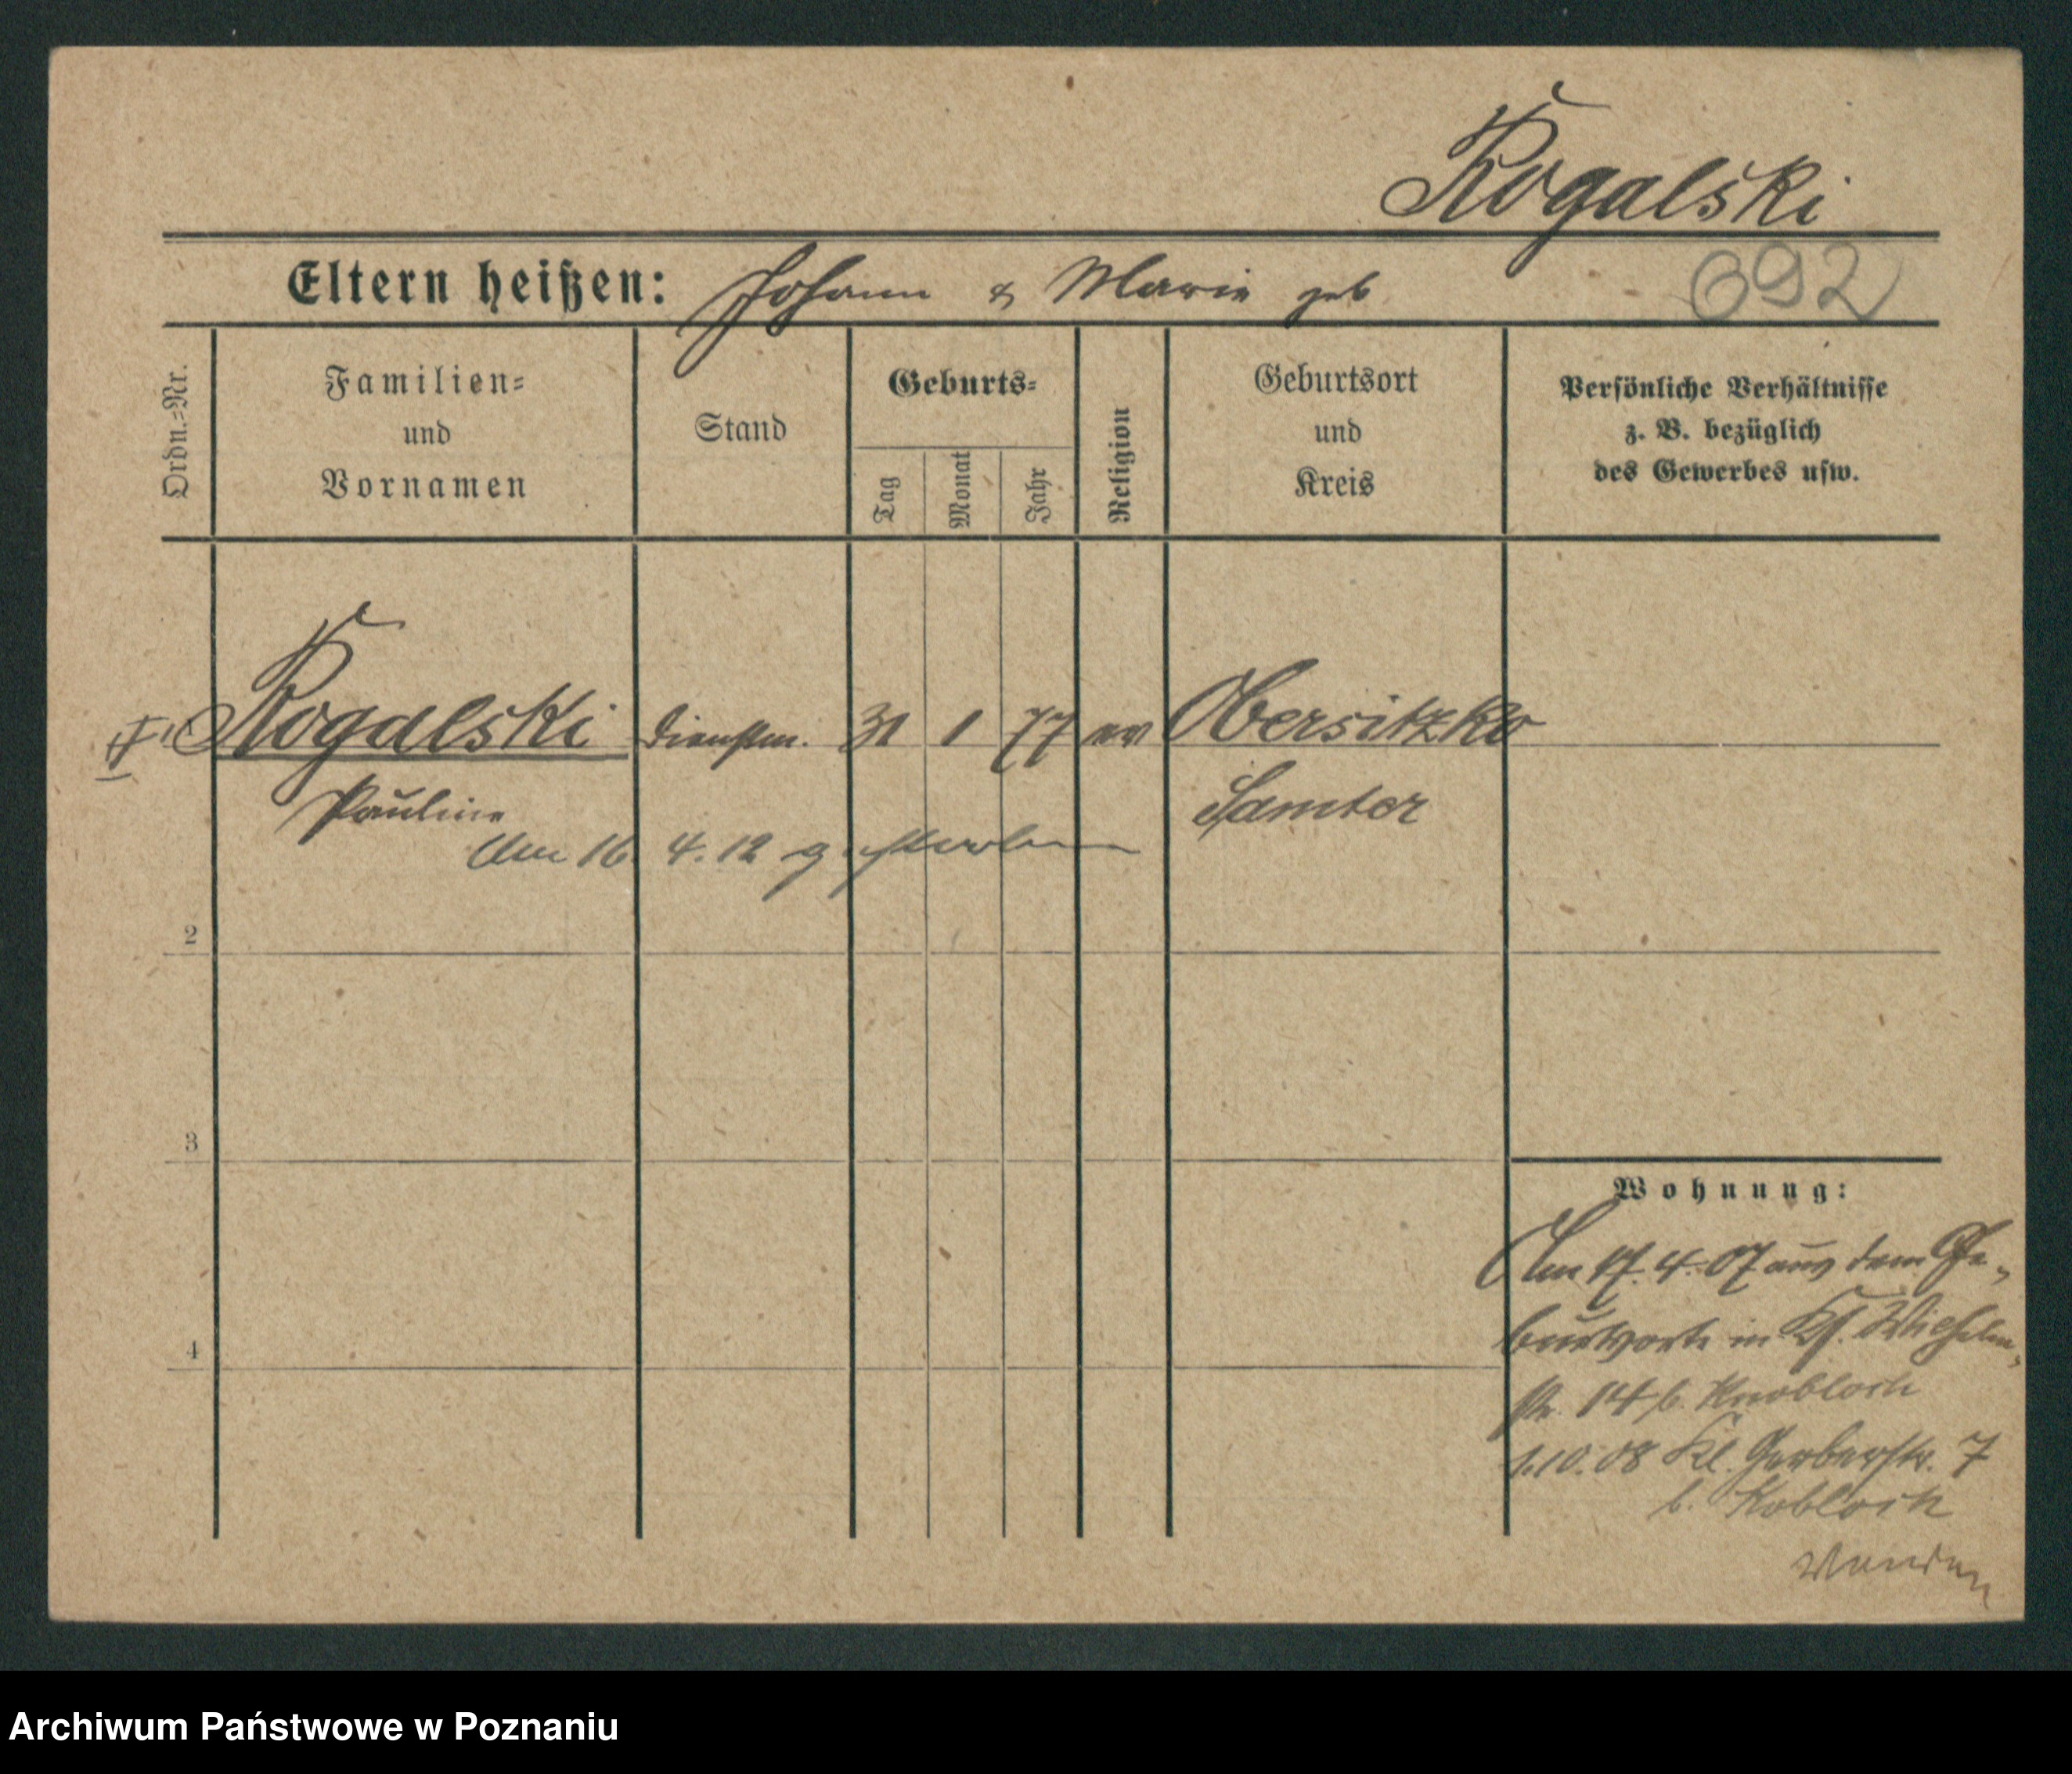 Rogalski
Eltern heißen: Johann & Marie geb
692
Ordn.=Nr.
Familien=
und
Vornamen
Stand
Geburts=
Tag
Monat
Jahr
Religion
Geburtsort
und
Kreis
Persönliche Verhältnisse
z. B. bezüglich
des Gewerbes usw.
Rogalski Dienstm. 31 1 77 ev Obersitzko
Pauline Samter
Am 16. 4. 12 gestorben
2
3
4
Wohnung:
Am 17. 4. 07 aus dem Ge-
burtsorte in Wilhelm-
str. 14 b. Knobloch
1.10.08 Kl. Gerberstr. 7
b. Kobloch
Archiwum Państwowe w Poznaniu